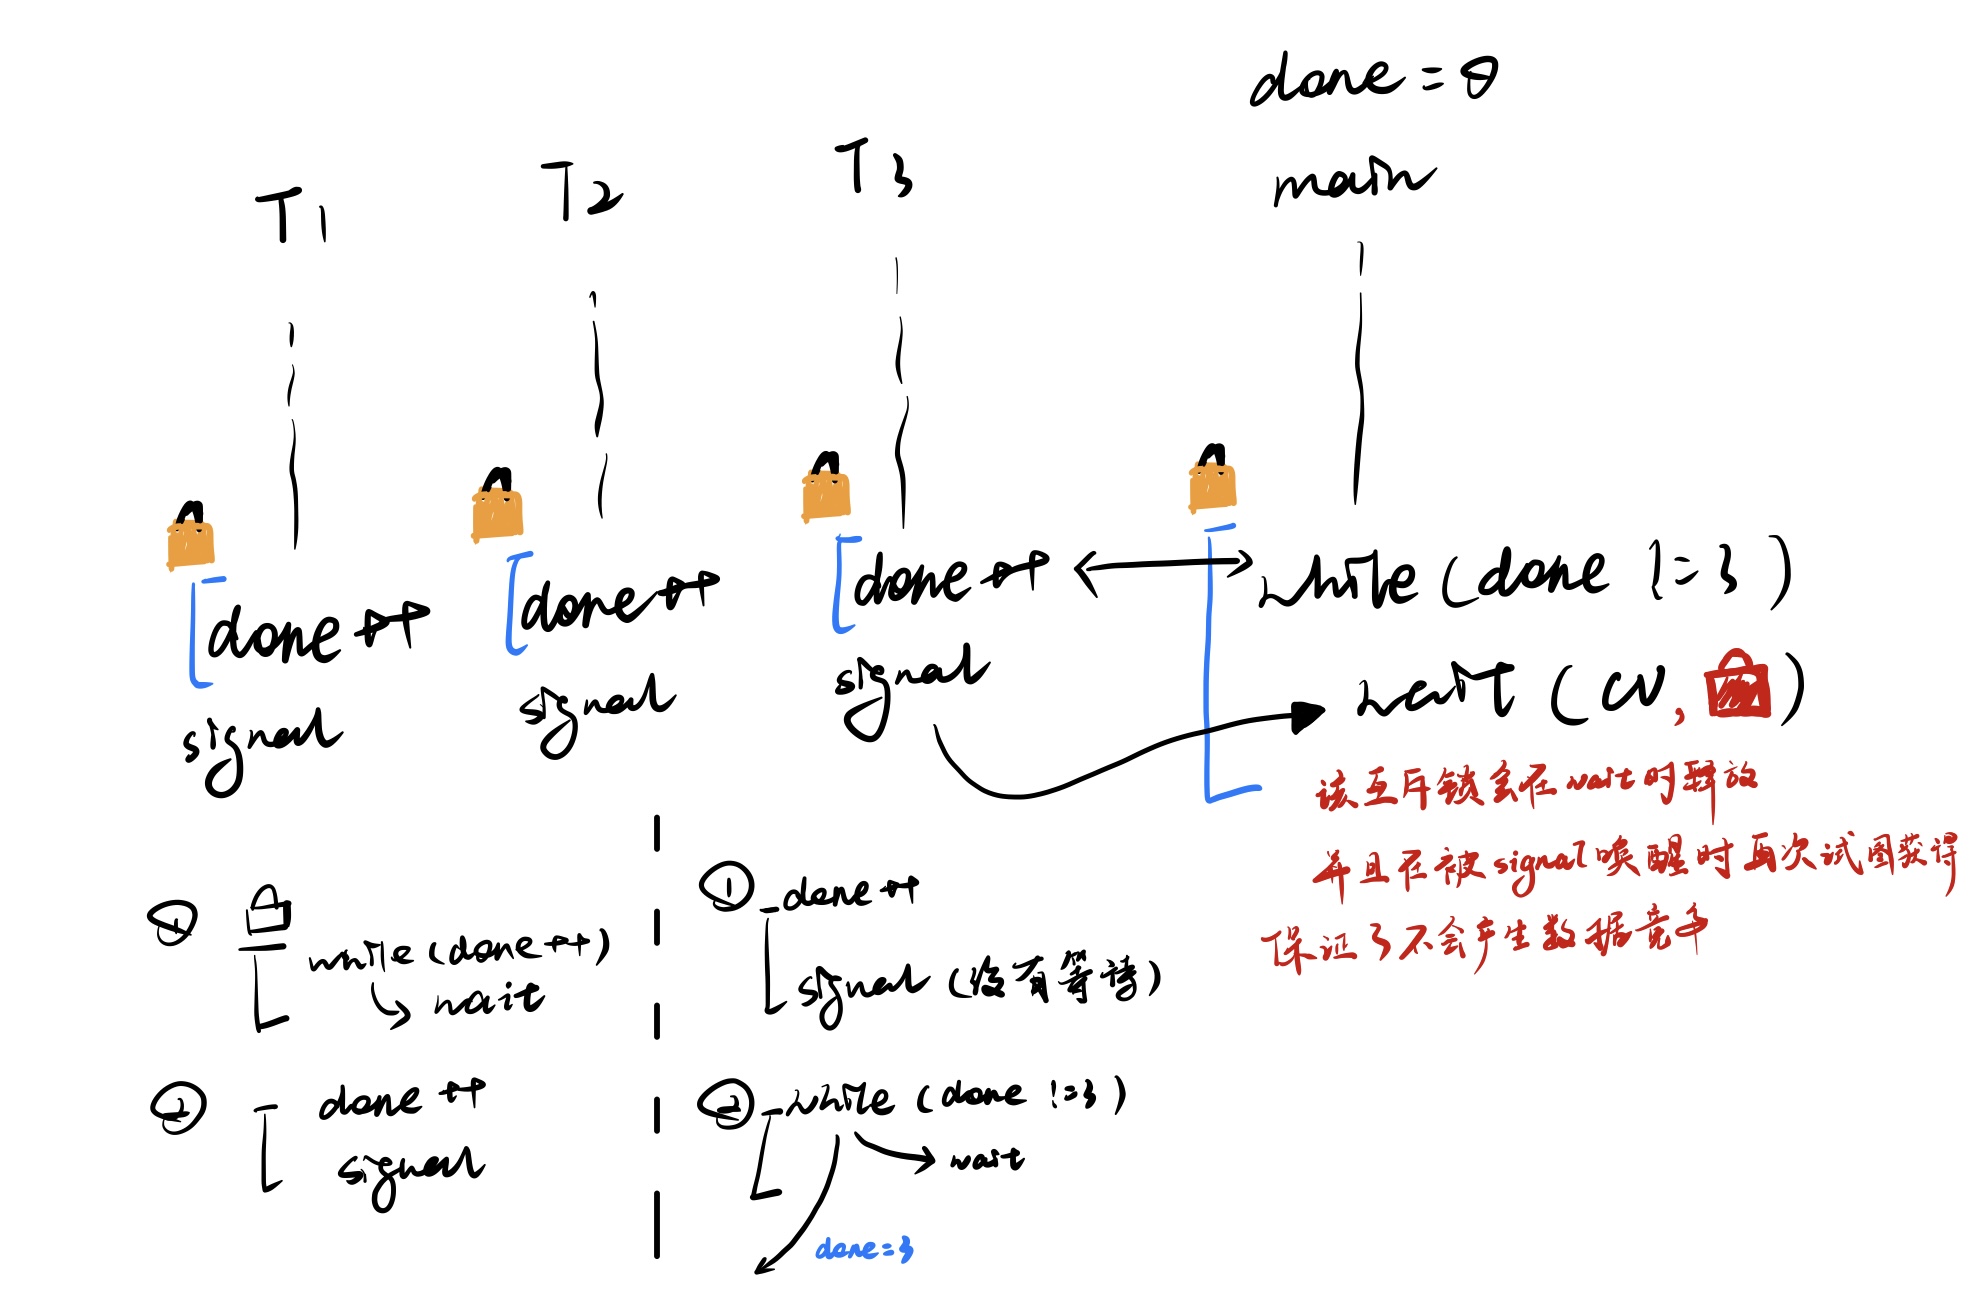 done = 0
main
T1
T2
T3
done ++
done ++
done ++
while (done != 3)
signal
signal
signal
wait (cv, )
该互斥锁会在wait时释放
并且在被signal唤醒时再次试图获得
保证了不会产生数据竞争
①
while (done ++)
wait
②
done ++
signal
①
done ++
signal (没有等待)
②
while (done != 3)
wait
done = 3